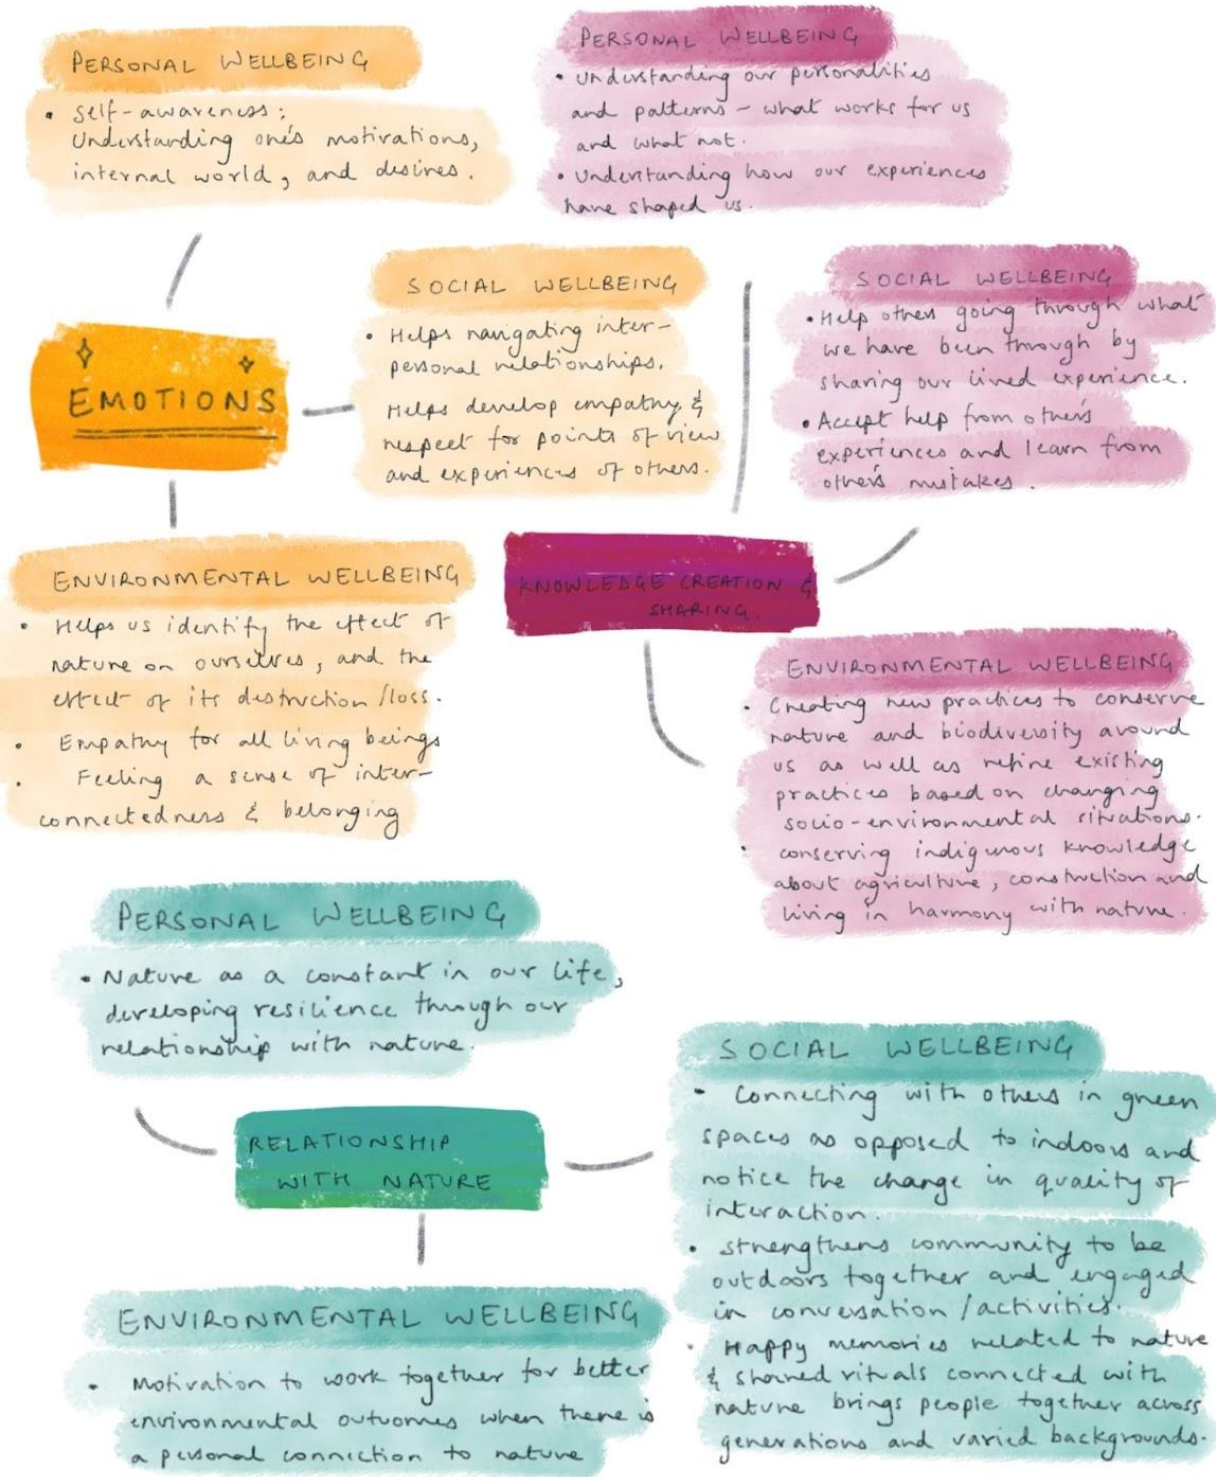 PERSONAL WELLBEING
• Self-awareness;
Understanding one's motivations,
internal world, and desires.
EMOTIONS
SOCIAL WELLBEING
• Helps navigating inter-
personal relationships.
Helps develop empathy &
respect for points of view
and experiences of others.
ENVIRONMENTAL WELLBEING
• Helps us identify the effect of
nature on ourselves, and the
effect of its destruction/loss.
• Empathy for all living beings
• Feeling a sense of inter-
connectedness & belonging
PERSONAL WELLBEING
• Understanding our personalities
and patterns - what works for us
and what not.
• Understanding how our experiences
have shaped us.
SOCIAL WELLBEING
• Help others going through what
we have been through by
sharing our lived experience.
• Accept help from other's
experiences and learn from
other's mistakes.
KNOWLEDGE CREATION &
SHARING.
ENVIRONMENTAL WELLBEING
• Creating new practices to conserve
nature and biodiversity around
us as well as refine existing
practices based on changing
socio-environmental situations.
• conserving indigenous knowledge
about agriculture, construction and
living in harmony with nature.
PERSONAL WELLBEING
• Nature as a constant in our life,
developing resilience through our
relationship with nature.
RELATIONSHIP
WITH NATURE
SOCIAL WELLBEING
• Connecting with others in green
spaces as opposed to indoors and
notice the change in quality of
interaction.
• strengthens community to be
outdoors together and engaged
in conversation/activities.
• Happy memories related to nature
& shared rituals connected with
nature brings people together across
generations and varied backgrounds.
ENVIRONMENTAL WELLBEING
• Motivation to work together for better
environmental outcomes when there is
a personal connection to nature